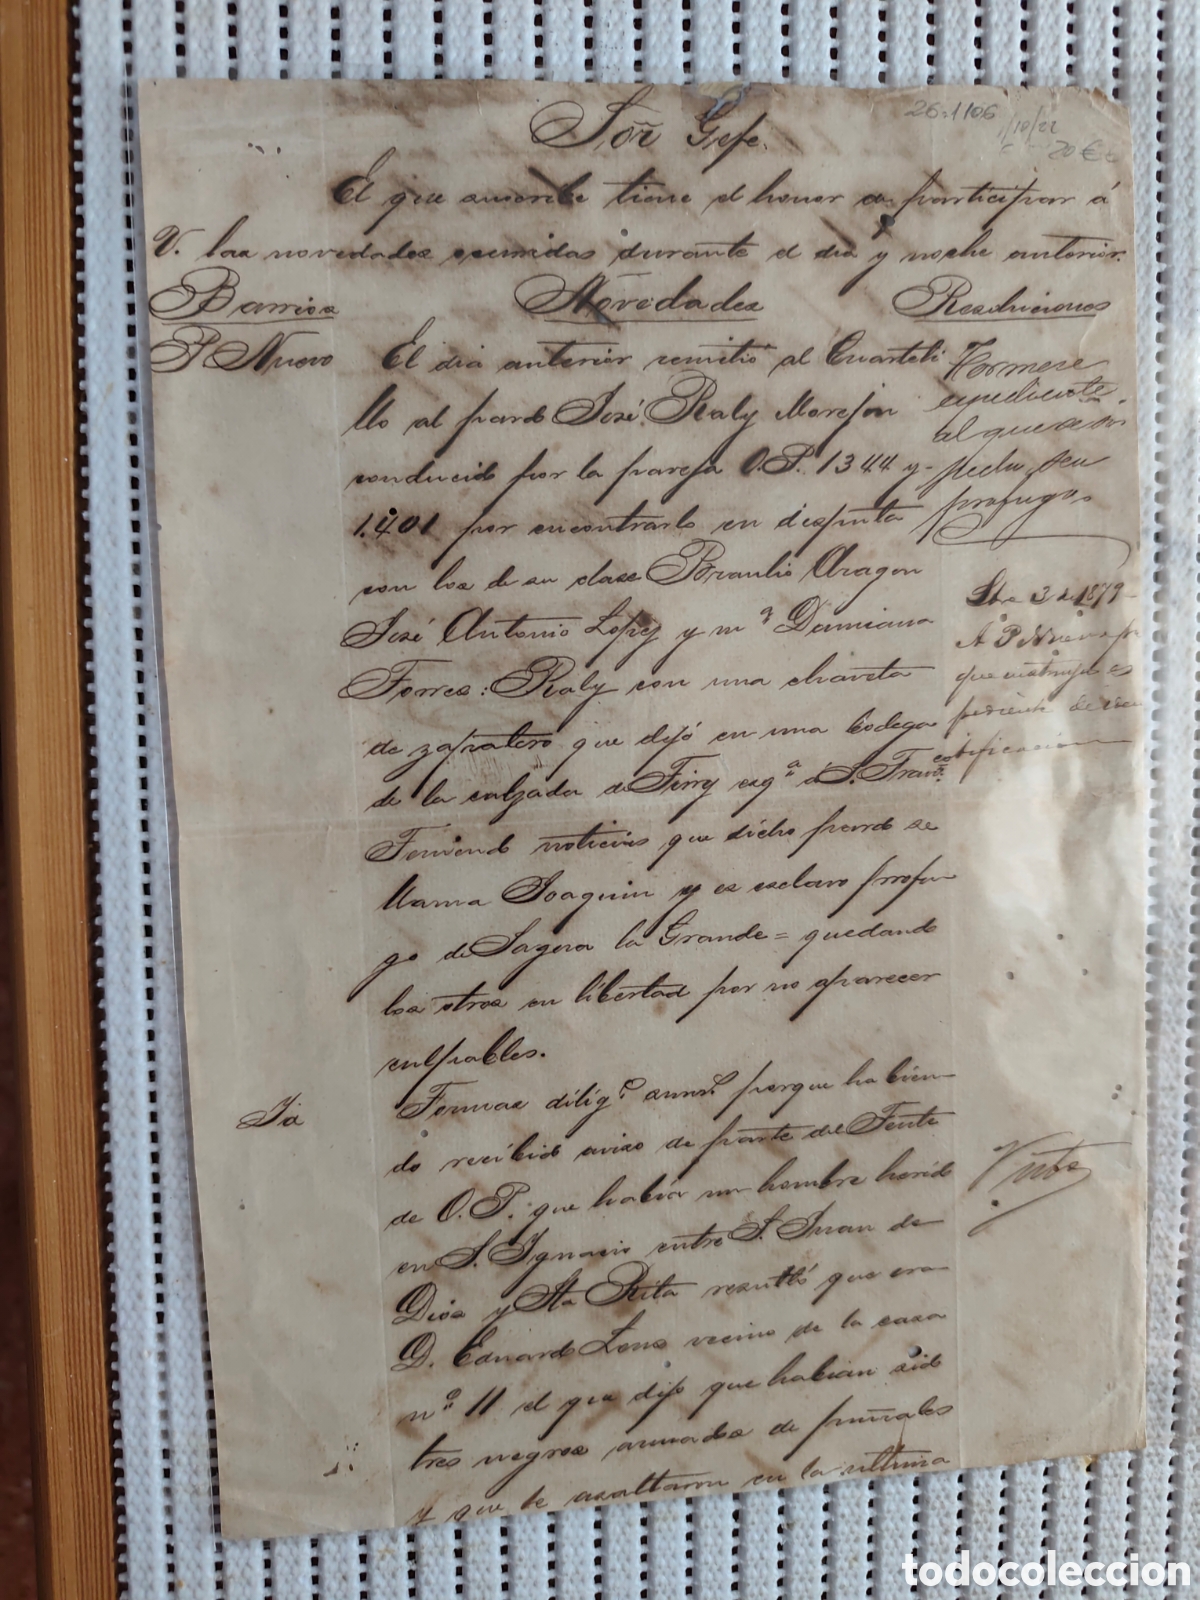 26-1106
1/10/22
20 €
Sor̃ Gefe.
El que suscribe tiene el honor de participar á
V. las novedades ocurridas durante el dia y noche anterior.
Barrios Novedades Resoluciones
P. Nuevo
El dia anterior remitió al Cuarteli
llo al pardo José Raly Morejon
conducido por la pareja O.P. 1344 y
1.401 por encontrarlo en disputa
con los de su clase Braulio Aragon
José Antonio Lopez y mª Damiana
Torres: Raly con una chaveta
de zapatero que dejó en una bodega
de la calzada de Tirry esqª á S. Franco.
Teniendo noticias que dicho pardo se
llama Joaquin y es esclavo profu
go de Sagua la Grande = quedando
los otros en libertad por no aparecer
culpables.
Formese
expediente
al que se
prófugo
3 de 1879
A P. Nuevo
que
Id
Formas diligs sums porque habien
do recibido aviso de parte del Tente
de O.P. que habia un hombre herido
en S. Ignacio entre S. Juan de
Dios y Sta Rita resultó que era
D. Eduardo Lons vecino de la casa
nº 11 el que dijo que habian sido
tres negros armados de puñales
y que le asaltaron en la ultima
Visto
todocoleccion